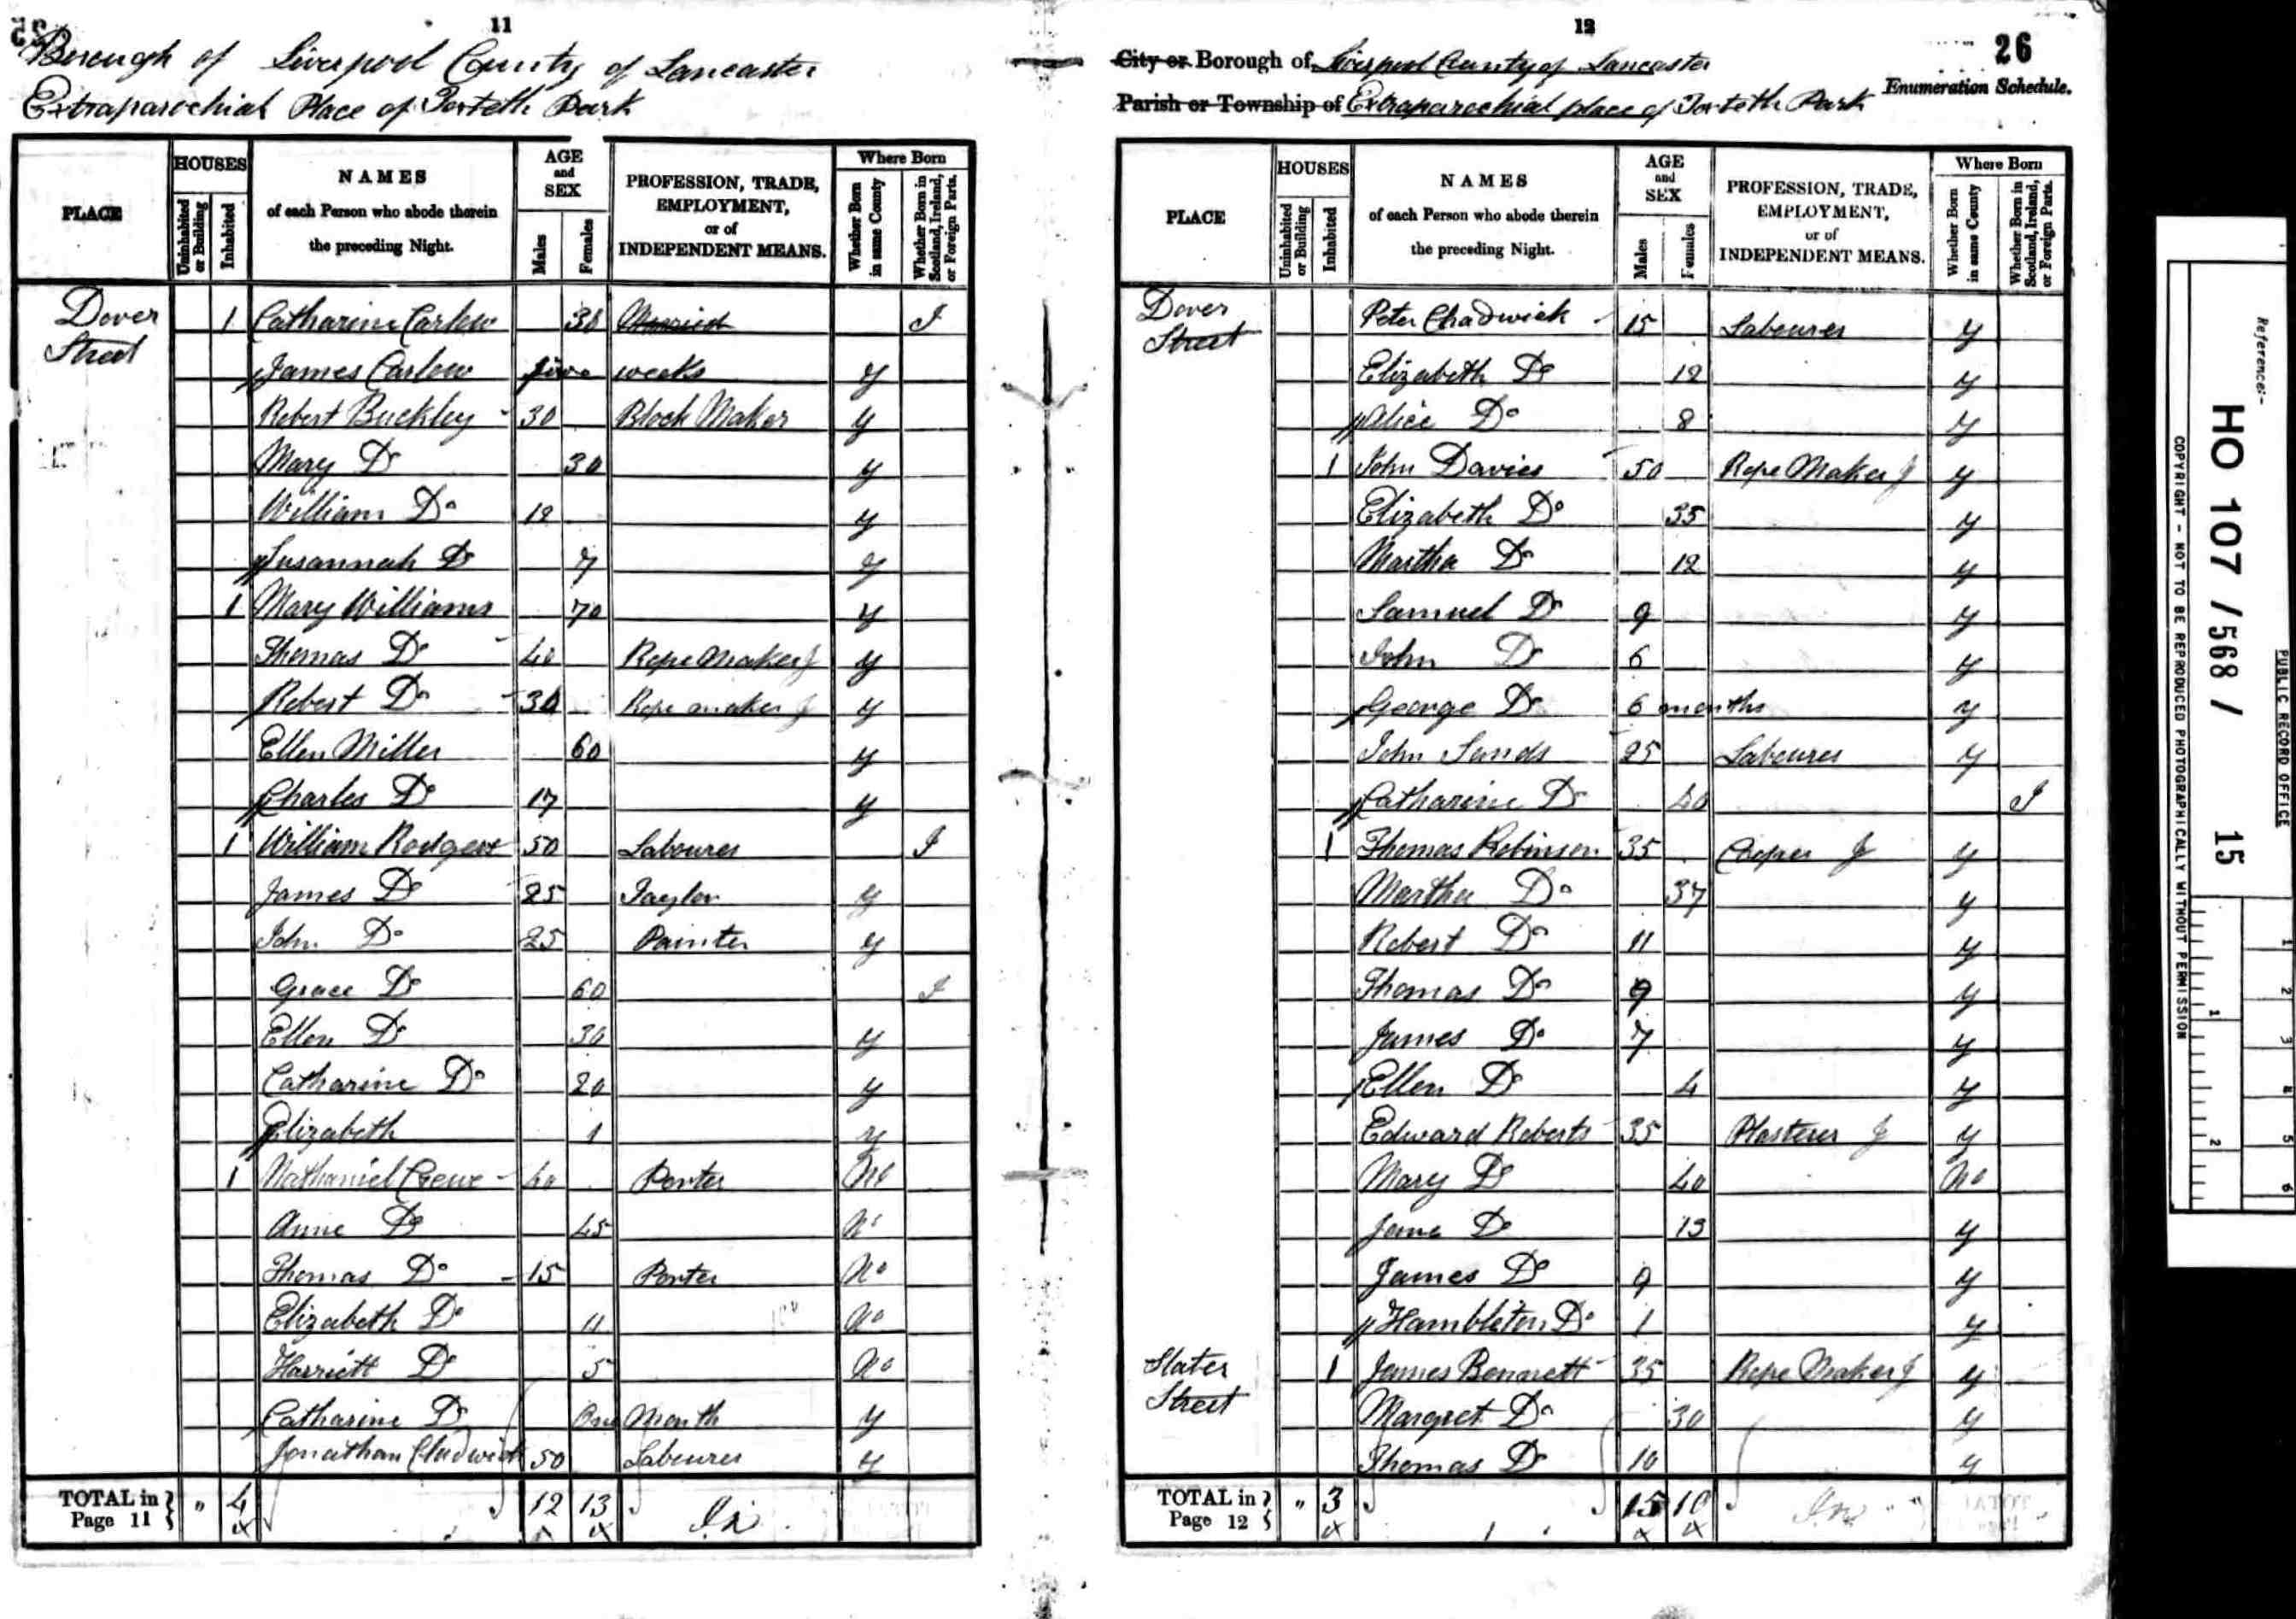 11
Borough of Liverpool County of Lancaster
Extraparochial Place of Toxteth Park
PLACE
HOUSES
Uninhabited or Building
Inhabited
NAMES
of each Person who abode therein
the preceding Night.
AGE
and
SEX
Males
Females
PROFESSION, TRADE,
EMPLOYMENT,
or of
INDEPENDENT MEANS.
Where Born
Whether Born in same County
Whether Born in Scotland, Ireland, or Foreign Parts.
Dover Street 1 Catharine Carlow 30 Married I
James Carlow five weeks y
Robert Buckley 30 Block Maker y
Mary Do 30 y
William Do 12 y
Susannah Do 7 y
1 Mary Williams 70 y
Thomas Do 40 Rope Maker J y
Robert Do 30 Rope maker J y
Ellen Miller 60 y
Charles Do 17 y
1 William Rodgers 50 Labourer I
James Do 25 Taylor y
John Do 25 Painter y
Grace Do 60 I
Ellen Do 30 y
Catharine Do 20 y
Elizabeth 1 y
1 Nathaniel Crewe 40 Porter No
Anne Do 45 No
Thomas Do 15 Porter No
Elizabeth Do 11 No
Harriett Do 5 No
Catharine Do One Month y
Jonathan Chadwick 50 Labourer y
TOTAL in Page 11 " 4 12 13
12
26
City or Borough of Liverpool County of Lancaster
Enumeration Schedule.
Parish or Township of Extraparochial place of Toxteth Park
PLACE
HOUSES
Uninhabited or Building
Inhabited
NAMES
of each Person who abode therein
the preceding Night.
AGE
and
SEX
Males
Females
PROFESSION, TRADE,
EMPLOYMENT,
or of
INDEPENDENT MEANS.
Where Born
Whether Born in same County
Whether Born in Scotland, Ireland, or Foreign Parts.
Dover Street Peter Chadwick 15 Labourer y
Elizabeth Do 12 y
Alice Do 8 y
1 John Davies 50 Rope Maker J y
Elizabeth Do 35 y
Martha Do 12 y
Samuel Do 9 y
John Do 6 y
George Do 6 months y
John Sands 25 Labourer y
Catharine Do 40 I
1 Thomas Robinson 35 Cooper J y
Martha Do 37 y
Robert Do 11 y
Thomas Do 9 y
James Do 7 y
Ellen Do 4 y
Edward Roberts 35 Plasterer J y
Mary Do 40 No
Jane Do 13 y
James Do 9 y
Hambleton Do 1 y
Slater Street 1 James Bennett 35 Rope Maker J y
Margret Do 30 y
Thomas Do 10 y
TOTAL in Page 12 " 3 15 10
Reference:-
HO 107 / 568 / 15
PUBLIC RECORD OFFICE
COPYRIGHT - NOT TO BE REPRODUCED PHOTOGRAPHICALLY WITHOUT PERMISSION
1 2 3 4 5 6
1 2